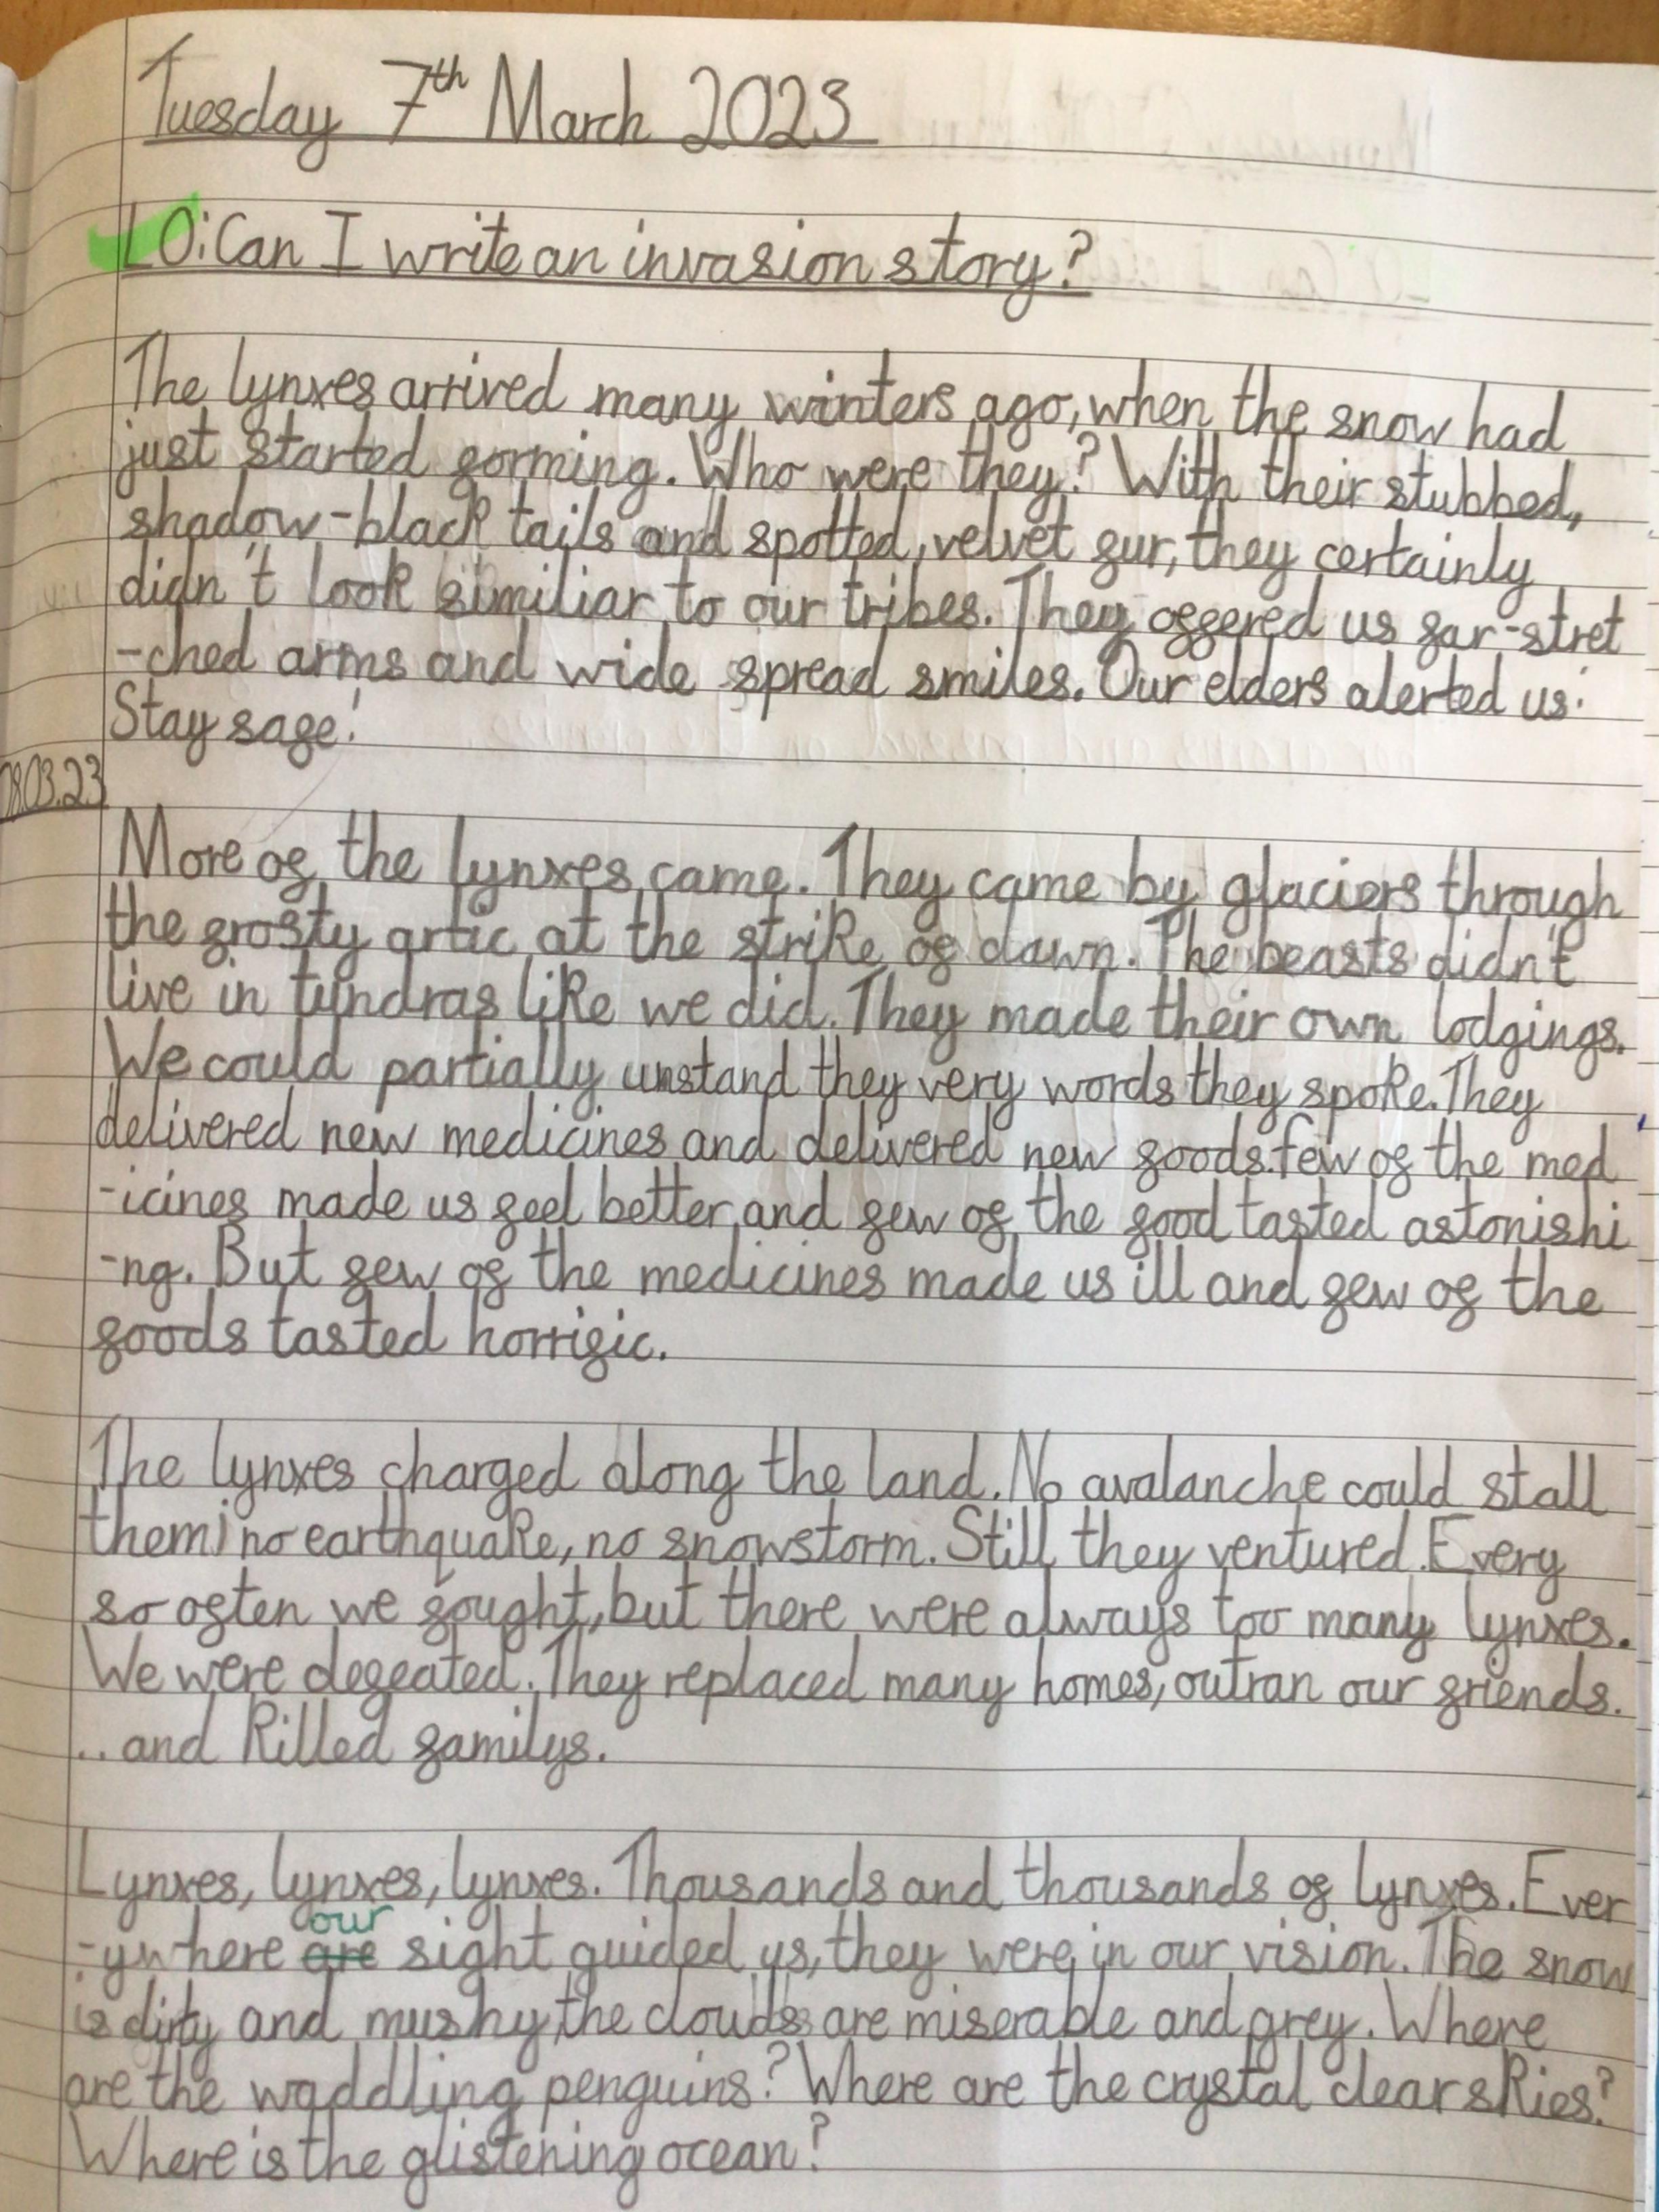 Tuesday 7th March 2023
LO: Can I write an invasion story?
The lynxes arrived many winters ago, when the snow had
just started forming. Who were they? With their stubbed,
shadow-black tails and spotted, velvet fur, they certainly
didn't look similiar to our tribes. They offered us far-stret
-ched arms and wide spread smiles. Our elders alerted us:
Stay safe!
08.03.23
More of the lynxes came. They came by glaciers through
the frosty artic at the strike of dawn. The beasts didn't
live in tundras like we did. They made their own lodgings.
We could partially unstand they very words they spoke. They
delivered new medicines and delivered new foods. few of the med
-icines made us feel better and few of the food tasted astonishi
-ng. But few of the medicines made us ill and few of the
foods tasted horrific.
The lynxes charged along the land. No avalanche could stall
them; no earthquake, no snowstorm. Still, they ventured. Every
so often we fought, but there were always too many lynxes.
We were defeated. They replaced many homes, outran our friends.
.. and killed familys.
Lynxes, lynxes, lynxes. Thousands and thousands of lynxes. Ever
-ywhere are our sight guided us, they were in our vision. The snow
is dirty and mushy, the clouds are miserable and grey. Where
are the waddling penguins? Where are the crystal clear skies?
Where is the glistening ocean?